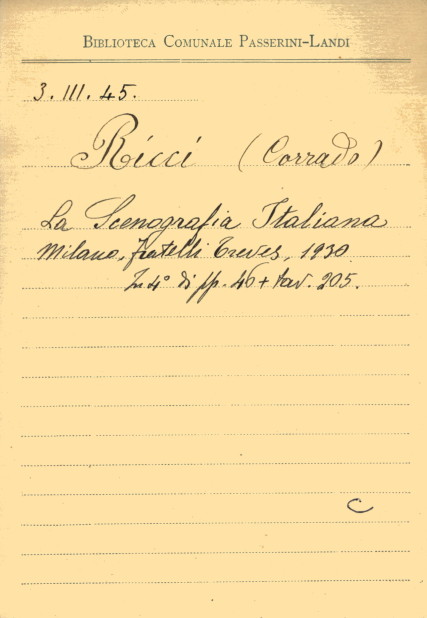 BIBLIOTECA COMUNALE PASSERINI-LANDI
3. III. 45.
Ricci (Corrado)
La Scenografia Italiana
Milano, Fratelli Treves, 1930
In 4° di pp. 46 + tav. 205.
C